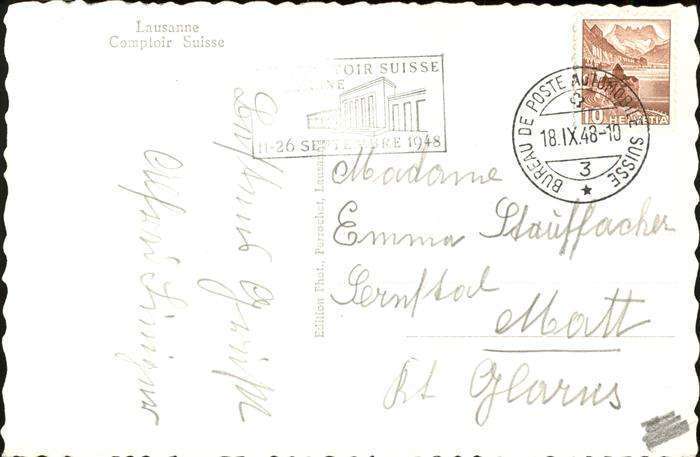 Lausanne
Comptoir Suisse
COMPTOIR SUISSE
LAUSANNE
11-26 SEPTEMBRE 1948
BUREAU DE POSTE AUTOMOBILE SUISSE
18.IX.48-10
3
10 HELVETIA
Madame
Emma Stauffacher
Sernftal
Matt
Kt Glarus
Edition Phot., Perrochet, Lausanne